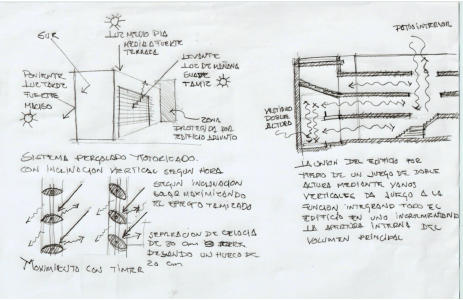 SUR
LUZ MEDIO DIA
MEDIA A FUERTE
TERRAZA
LEVANTE
LUZ DE MAÑANA
SUAVE
TAMIZ
PONIENTE
LUZ TARDE
FUERTE
MACISO
ZONA
PROTEGIDA POR
EDIFICIO ADJUNTO
SISTEMA PERGOLADO MOTORIZADO.
CON INCLINACION VERTICAL SEGUN HORA
SEGUN INCLINACION
SOLAR MAXIMIZANDO
EL EFECTO TAMIZADO
SEPARACION DE CELOCIA
DE 20 cm
DEJANDO UN HUECO DE
20 cm
MOVIMIENTO CON TIMER
PATIO INTERIOR
VESTIBULO
DOBLE
ALTURA
LA UNION DEL EDIFICIO POR
MEDIO DE UN JUEGO DE DOBLE
ALTURA MEDIANTE VANOS
VERTICALES DA JUEGO A LA
FUNCION INTEGRANDO TODO EL
EDIFICIO EN UNO INCREMENTANDO
LA APERTURA INTERNA DEL
VOLUMEN PRINCIPAL